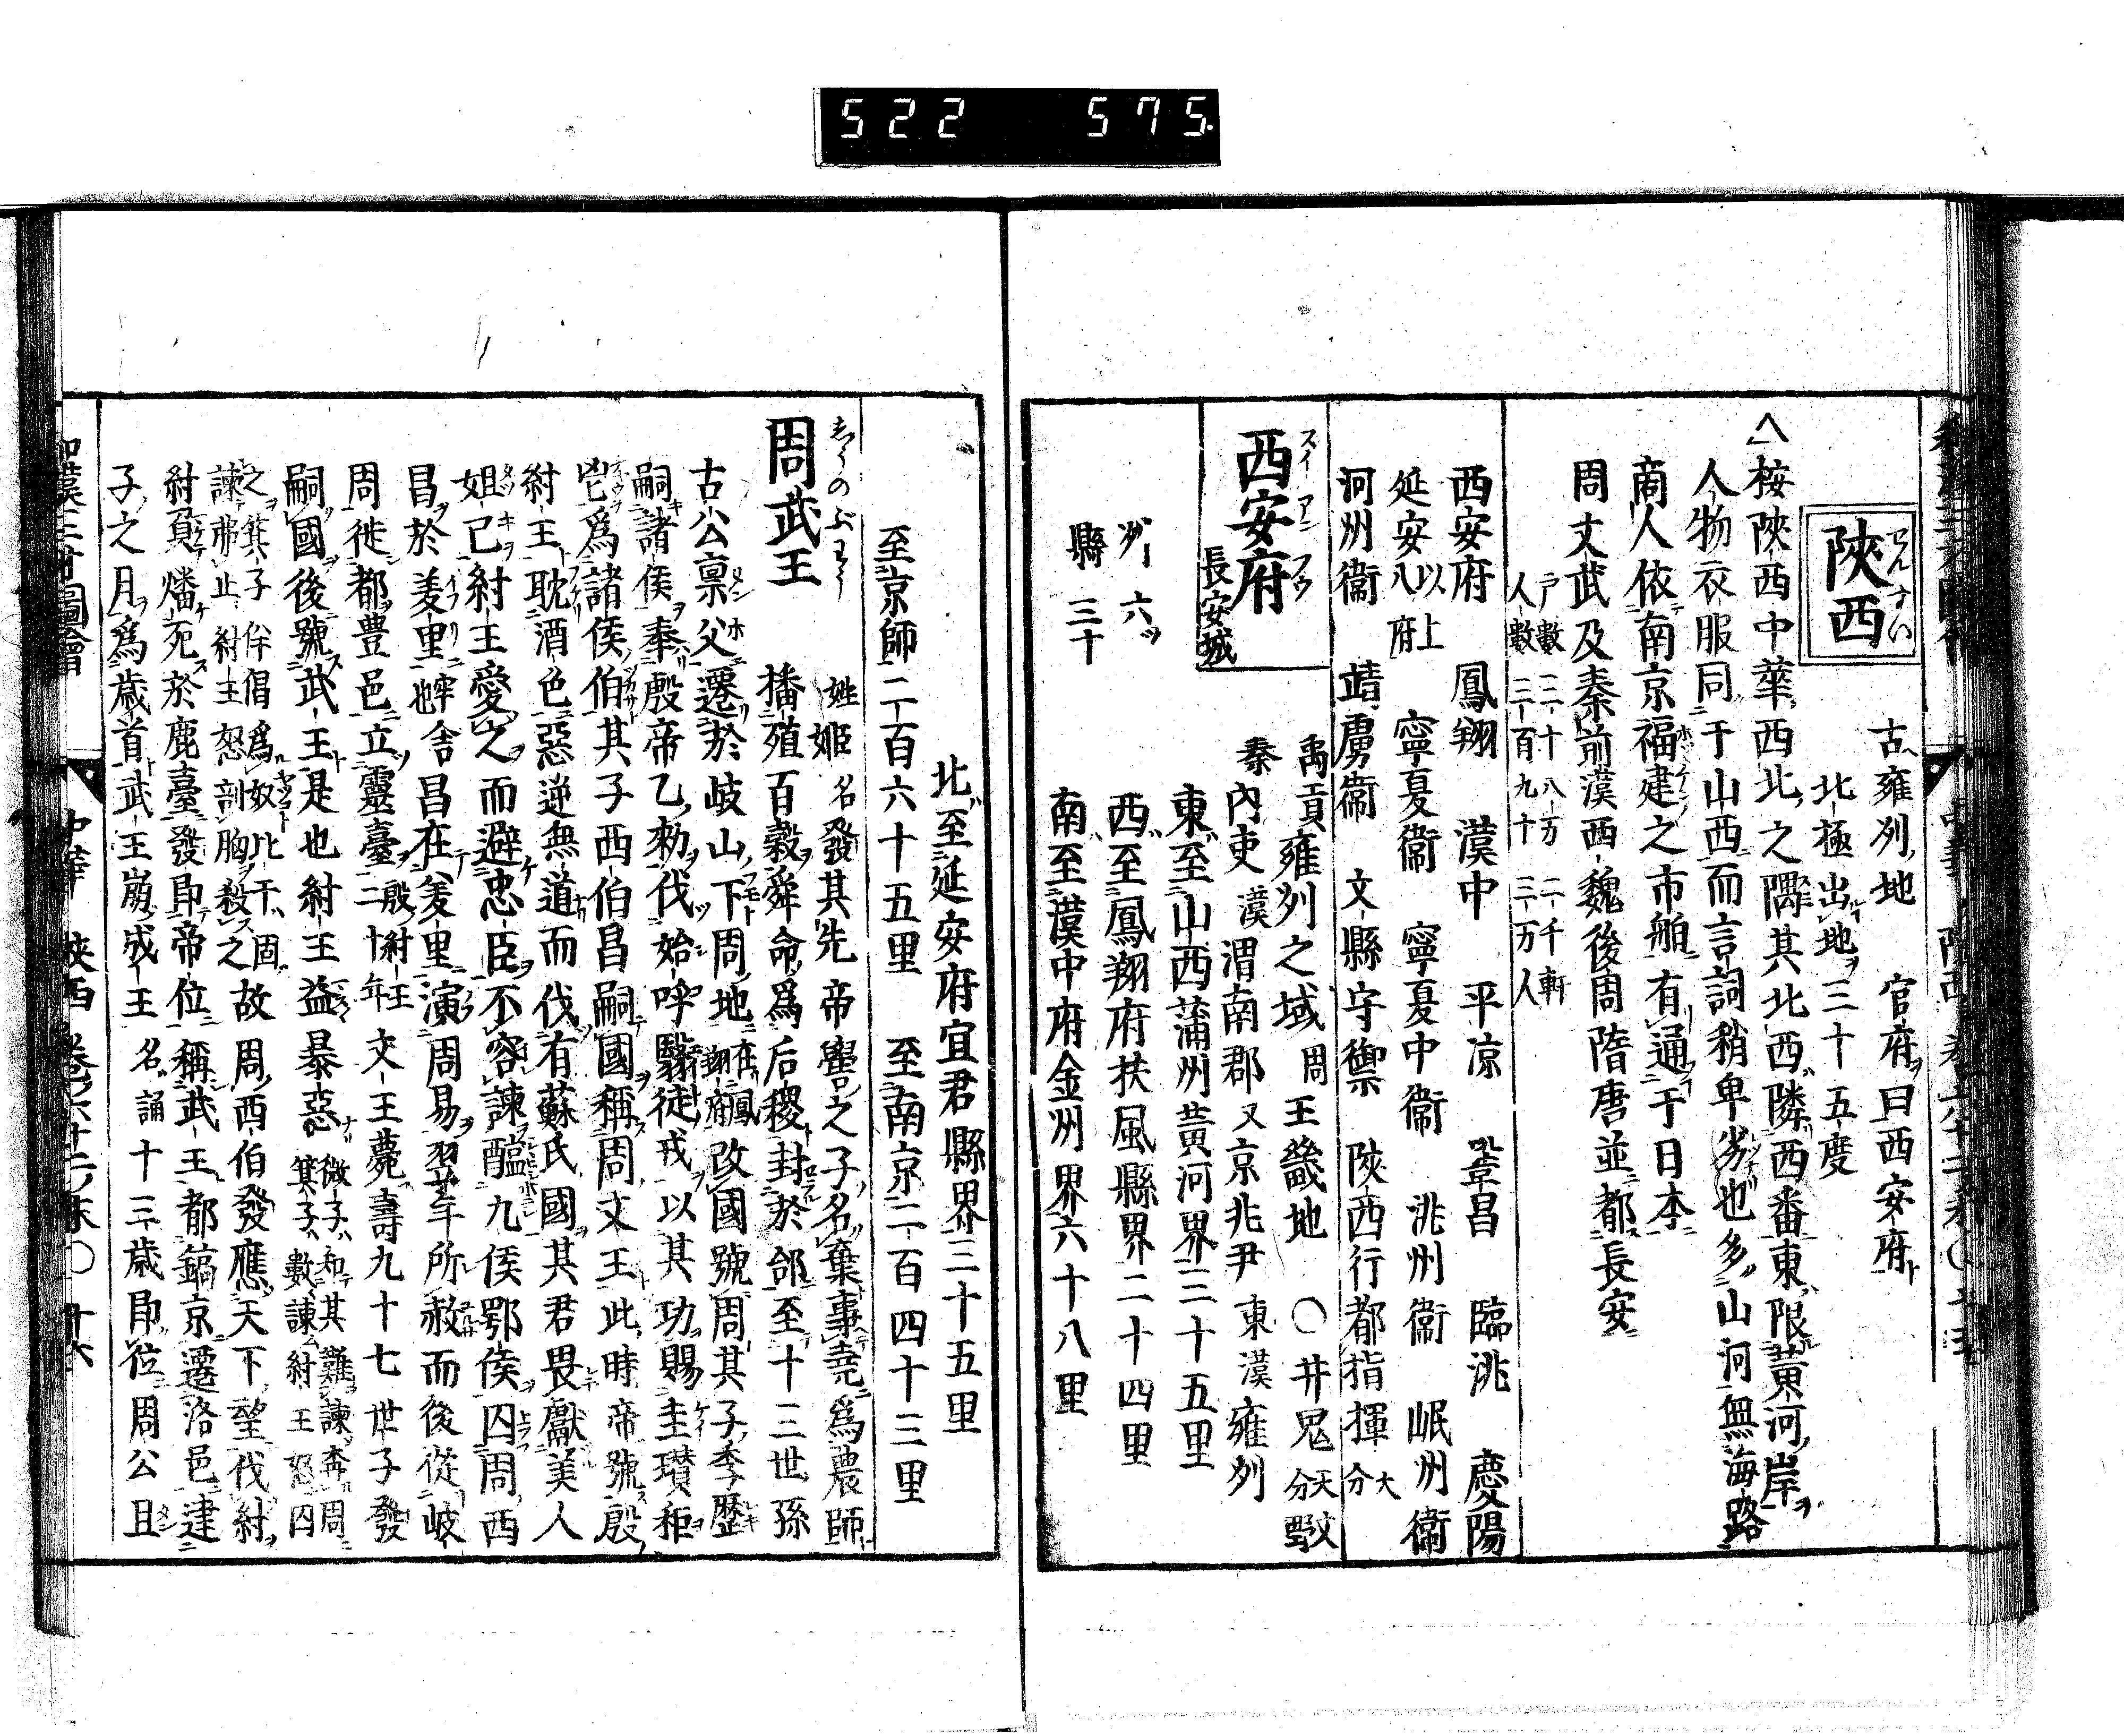 522 575.
陜西
古雍列地 官府曰西安府
北極出地三十五度
△桉陜西中華西北之隅其北西隣西番東限黄河岸
人物衣服同于山西而言詞稍卑劣也多山河無海路
商人依南京福建之市舶有通于日本
周文武及秦前漢西魏後周隋唐並都長安
戸數二十八万二千軒
人數三百九十三万人
西安府 鳳翔 漢中 平凉 鞏昌 臨洮 慶陽
延安以上八府 寧夏衞 寧夏中衞 洮州衞 岷州衞
河州衞 靖虜衞 文縣守禦 陜西行都指揮大分
西安府
長安城
禹貢雍列之域周王畿地 〇井鬼天文分野
秦内吏漢渭南郡又京兆尹東漢雍列
東至山西蒲州黄河界三十五里
州六ツ 西至鳳翔府扶風縣界二十四里
縣三十 南至漢中府金州界六十八里
北至延安府宜君縣界三十五里
至京師二百六十五里 至南京二百四十三里
周武王
姓姫名發其先帝嚳之子名棄事堯爲農師
播殖百穀舜命爲后稷封於邰至十三世孫
古公亶父遷於岐山下周地在鳳翔府改國號周其子季歷
嗣諸侯奉殷帝乙勅伐始呼翳徒戎以其功賜圭瓚秬
鬯爲諸侯伯其子西伯昌嗣國稱周文王此時帝號殷
紂王耽酒色惡逆無道而伐有蘇氏國其君畏獻美人
妲己紂王愛之而避忠臣不容諫醢九侯鄂侯囚周西
昌於羑里也牢舎昌在羑里演周易翌年所赦而後從岐
周徙都豊邑立靈臺殷紂王二十年文王薨壽九十七世子發
嗣國後號武王是也紂王益暴惡微子知其難諫奔周箕子數諫紂王怒囚
之箕子佯倡爲奴比干固諫弗止紂王怒剖胸殺之故周西伯發應天下望伐紂
紂負燔死於鹿臺發卽帝位稱武王都鎬京遷洛邑建
子之月爲歳首武王崩成王名誦十三歳卽位周公且
和漢三才圖會 中華 陜西 卷之六十二末〇 廿六